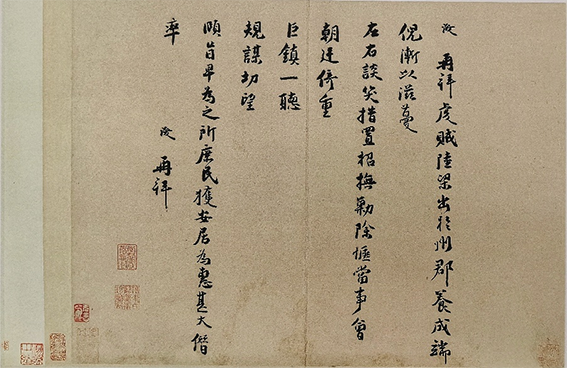 浚再拜虔賊陸梁出於州郡養成端
倪漸以滋蔓
左右談笑措置招撫勦除愜當事會
朝廷倚重
巨鎮一聽
規謀切望
頤旨早為之所庶民獲安居為惠甚大僭
率 浚再拜